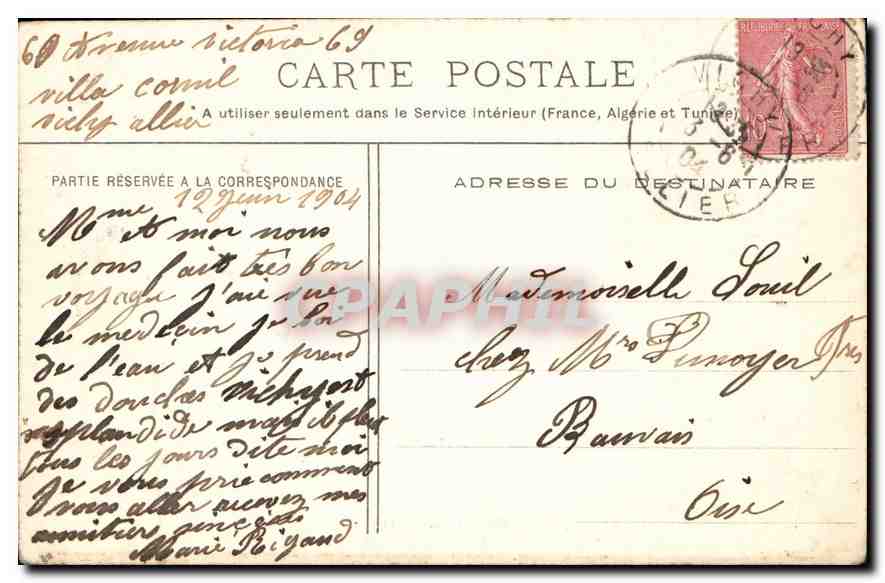 69 Avenue Victoria 69
villa Cornil
vichy allier
CARTE POSTALE
A utiliser seulement dans le Service Intérieur (France, Algérie et Tunisie)
RÉPUBLIQUE FRANÇAISE
10
VICHY
ALLIER
PARTIE RÉSERVÉE A LA CORRESPONDANCE
12 Jeun 1904
Mme A moi nous
avons fait très bon
voyage j'aie vue
le medecin je boi
de l'eau et je prend
des douches vichy est
splandide mais il pleut
tous les jours dite moi
je vous prie comment
vous aller recevez mes
amitier sincères
Marie Rigaud
ADRESSE DU DESTINATAIRE
Mademoiselle Louil
chez Mrs Lunoyer Frès
Bauvais
Oise
CPAPHIL